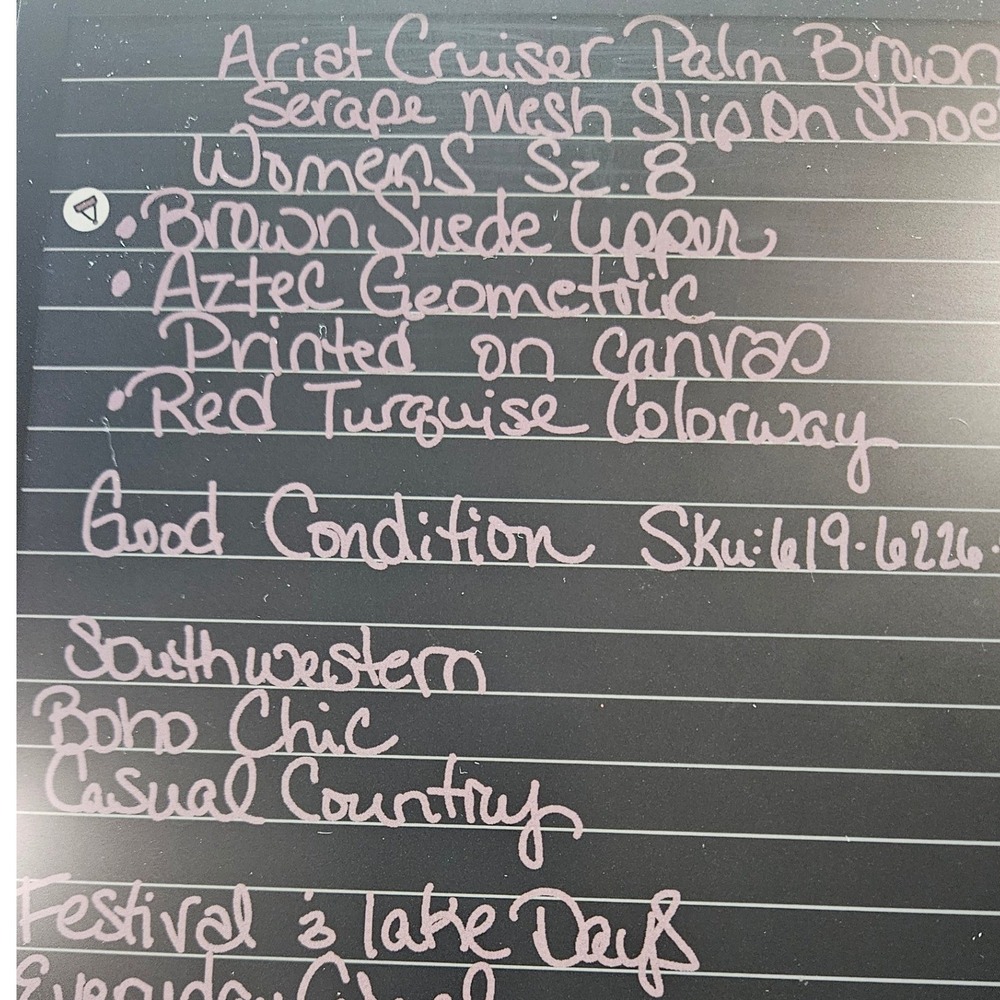 Ariat Cruiser Palm Brown
Serape Mesh Slip On Shoe
Womens Sz. 8
• Brown Suede Upper
• Aztec Geometric
Printed on Canvas
• Red Turquise Colorway
Good Condition SKu: 619-6226-
Southwestern
Boho Chic
Casual Country
Festival & lake Days
Everyday